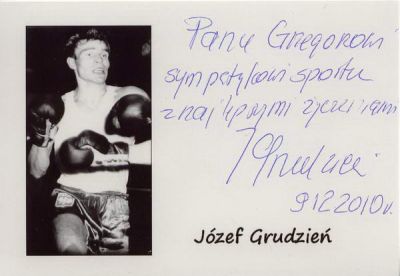 Panu Gregorowi
sympatykowi sportu
z najlepszymi życzeniami
JGrudzień
9.12.2010r.
Józef Grudzień